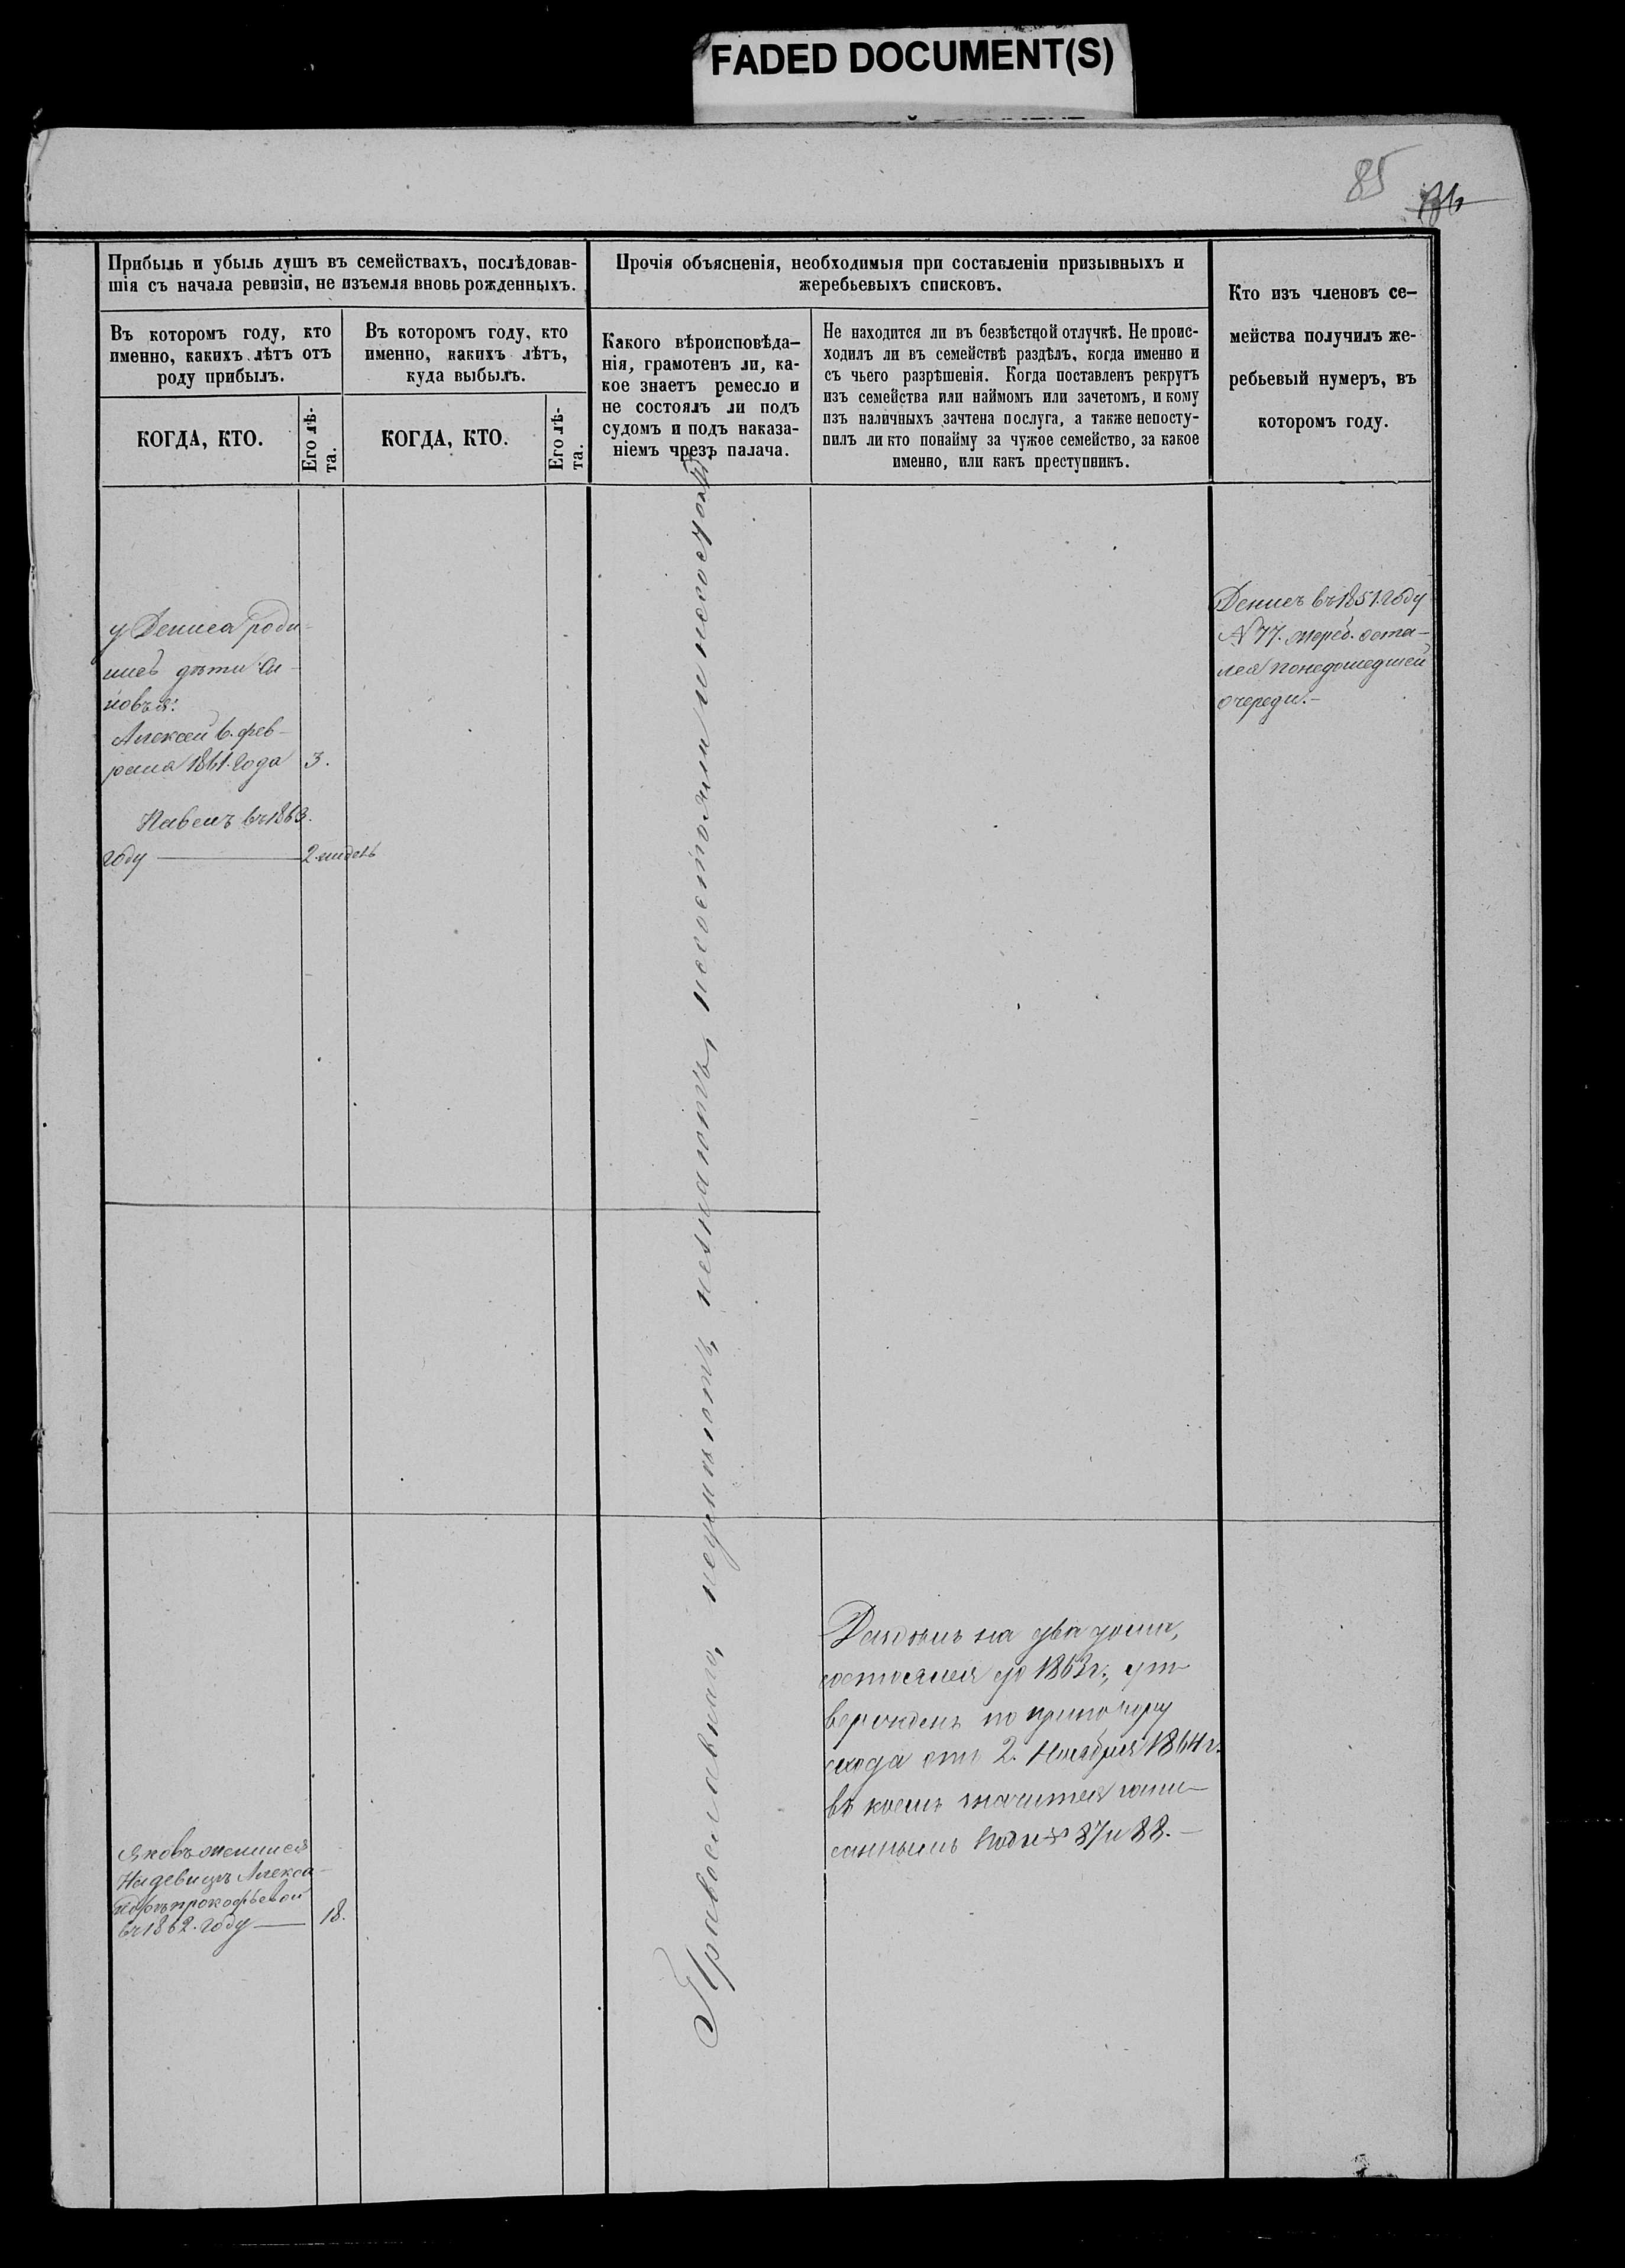 FADED DOCUMENT(S)
85
Прибыль и убыль душъ въ семействахъ, послѣдовав-
шія съ начала ревизіи, не изъемля вновь рожденныхъ.
Въ которомъ году, кто
именно, какихъ лѣтъ отъ
роду прибылъ.
КОГДА, КТО.
Его лѣ-
та.
Въ которомъ году, кто
именно, какихъ лѣтъ,
куда выбылъ.
КОГДА, КТО.
Его лѣ-
та.
Прочія объясненія, необходимыя при составленіи призывныхъ и
жеребьевыхъ списковъ.
Какого вѣроисповѣда-
нія, грамотенъ ли, ка-
кое знаетъ ремесло и
не состоялъ ли подъ
судомъ и подъ наказа-
ніемъ чрезъ палача.
Не находится ли въ безвѣстной отлучкѣ. Не проис-
ходилъ ли въ семействѣ раздѣлъ, когда именно и
съ чьего разрѣшенія. Когда поставленъ рекрутъ
изъ семейства или наймомъ или зачетомъ, и кому
изъ наличныхъ зачтена послуга, а также непосту-
пилъ ли кто понайму за чужое семейство, за какое
именно, или какъ преступникъ.
Кто изъ членовъ се-
мейства получилъ же-
ребьевый нумеръ, въ
которомъ году.
у Дениса роди-
лись дѣти сы-
новья:
Алексей 6. фев-
раля 1861. года 3.
Павелъ въ 1863.
году — 2 недель
Денисъ въ 1851 году
№ 77. жереб. оста-
лся понедошедшей
очереди.—
Православнаго, неумѣютъ, незнаютъ, несостояли и несостоятъ
Раздѣлъ на два дома,
состоялся до 1863 г., ут-
вержденъ по приговору
схода отъ 2. Ноября 1864 г.
въ коемъ значится
саннымъ подъ №№ 87 и 88.—
Яковъ женился
на девицѣ Алекса-
ндрѣ прокофьевой
въ 1862. году — 18.